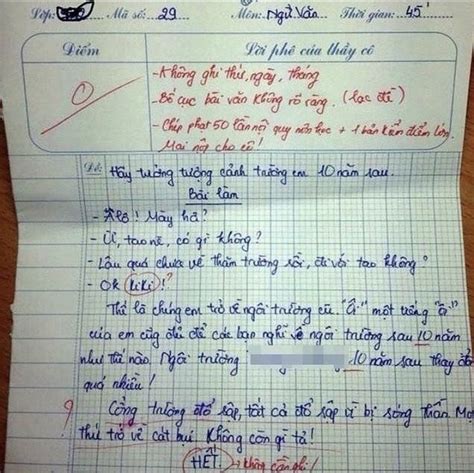 Lớp: Mã số: 29 Môn: Ngữ Văn Thời gian: 45'
Điểm Lời phê của thầy cô
0
- Không ghi thứ, ngày, tháng
- Bố cục bài văn không rõ ràng. (lạc đề)
- Chép phạt 50 lần nội quy môn học + 1 bản kiểm điểm lớn.
Mai nộp cho cô!
Đề: Hãy tưởng tượng cảnh trường em 10 năm sau.
Bài làm
- Álô! Mày hả?
- Ừ, tao nè, có gì không?
- Lâu quá chưa về thăm trường rồi, đi với tao không?
- Ok kiki !?
Thế là chúng em trở về ngôi trường cũ. "Ái" một tiếng "ái"
của em cũng đủ để các bạn nghĩ về ngôi trường sau 10 năm
như thế nào. Ngôi trường 10 năm sau thay đổ
quá nhiều!
? Cổng trường đổ sập, tất cả đổ sập vì bị sóng thần. Mọ
thứ trở về cát bụi. Không còn gì tả!
HẾT. → không cần ghi!